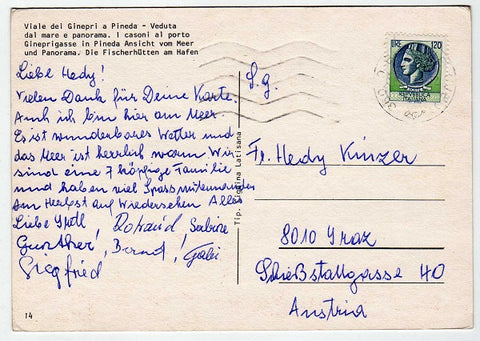 Viale dei Ginepri a Pineda - Veduta
dal mare e panorama. I casoni al porto
Gineprigasse in Pineda Ansicht vom Meer
und Panorama. Die Fischerhütten am Hafen
Liebe Hedy!
Vielen Dank für Deine Karte.
Auch ich bin hier am Meer.
Es ist wunderbares Wetter und
das Meer ist herrlich warm. Wir
sind eine 7 köpfige Familie
und haben viel Spass miteinander
Am Herbst auf Wiedersehen Alles
Liebe
Sabine
Gunther, Bernd, Gabi
Siegfried
14
Tip. Latisana
LIRE 120
S.g.
Fr. Hedy Kinzer
8010 Graz
Schießstattgasse 40
Austria